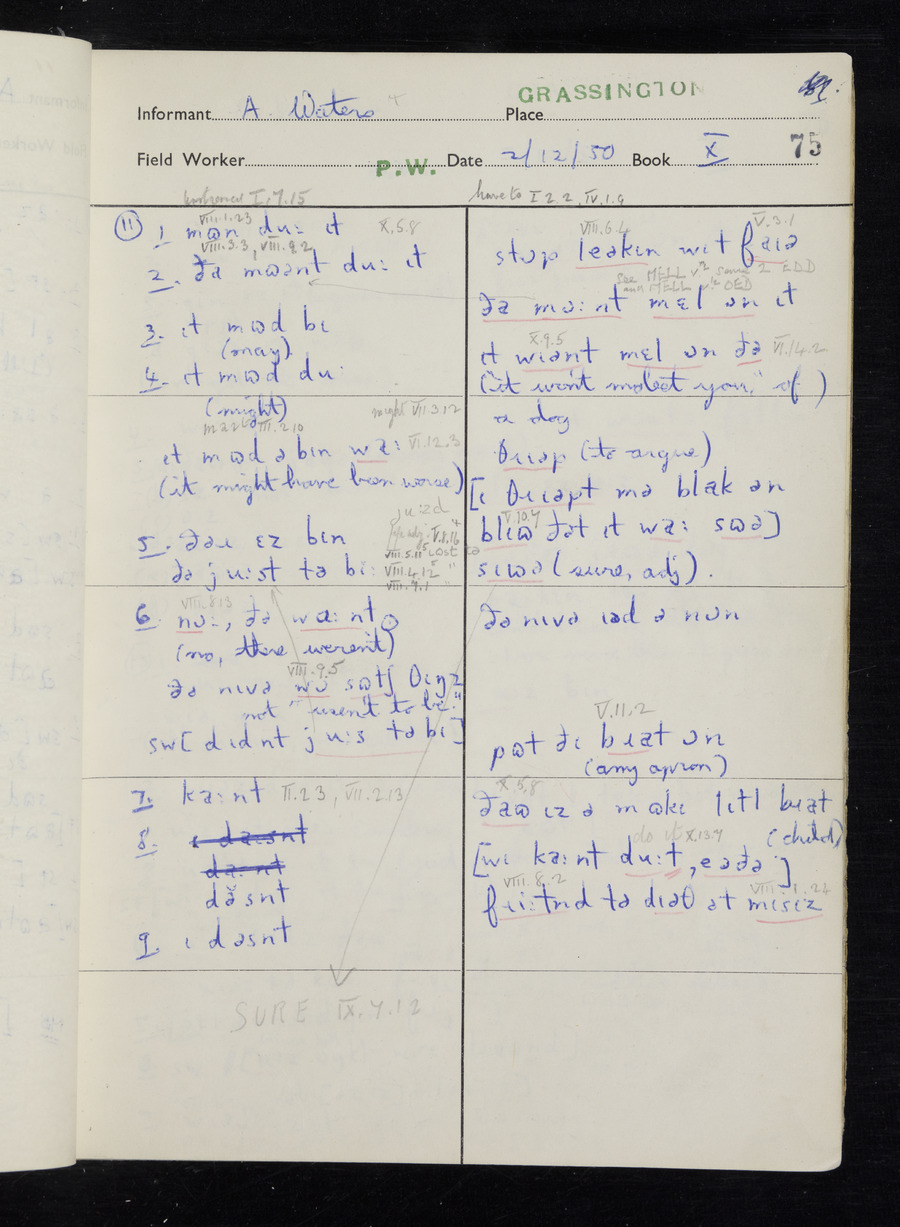 GRASSINGTON
Informant A. Waters Place
Field Worker P.W. Date 2/12/50 Book X 75
I.7.15 have to I 2.2, IV.1.9
VIII.1.23
11 1. mʊn duː ɪt X.5.8
VIII.3.3, VIII.9.2
2. ðə duː ɪt
3. ɪt mʊd bɪ
(may)
4. ɪt mʊd duː
(might) might VII.3.12
VIII.2.10
ɪt mʊd ə bɪn waː VI.12.3
(it might have been worse)
juːzd
5. ðəɪ ɛz bɪn
VIII.5.11
ðə juːst tə biː VIII.4.12
VIII.9.1
VIII.8.13
6. nɔː, ðə waːnt
(no, there weren't)
VIII.9.5
ðə nɪvə wʊ sɪtʃ θɪŋz
not "usen't to be."
sw[dɪdnt juːs tə bɪ]
7. kaːnt II.2.3, VII.2.13
8. ɪ daːsnt
daːnt
dăsnt
9. ɪ dəsnt
SURE IX.7.12
VIII.6.4 V.3.1
stop leakin wɪt faɪə
see MELL v² sense 2 EDD
and MELL v² OED
ðə mʊːnt mɛl ɒn ɪt
X.9.5
ɪt wɪənt mɛl ɒn ðə VI.14.2
("it won't molest you," of)
a dog
θrɪəp (to argue)
[ɪ θrɪəpt mə blak ən
V.10.7
blɪʊ ðət ɪt waː sʊə]
sɪʊə (sure, adj).
ðə nɪvə ɪəd ə nʊn
V.11.2
pʊt ðɪ brat ɒn
(any apron)
X.5,8
ðaʊ ɪz ə mʊkɪ lɪtl brat
(child)
do it X.13.7
[wɪ kaːnt duːt, eəðə]
VIII.8.2 VIII.1.24
friːtnd tə dɪəθ ət mɪsɪz